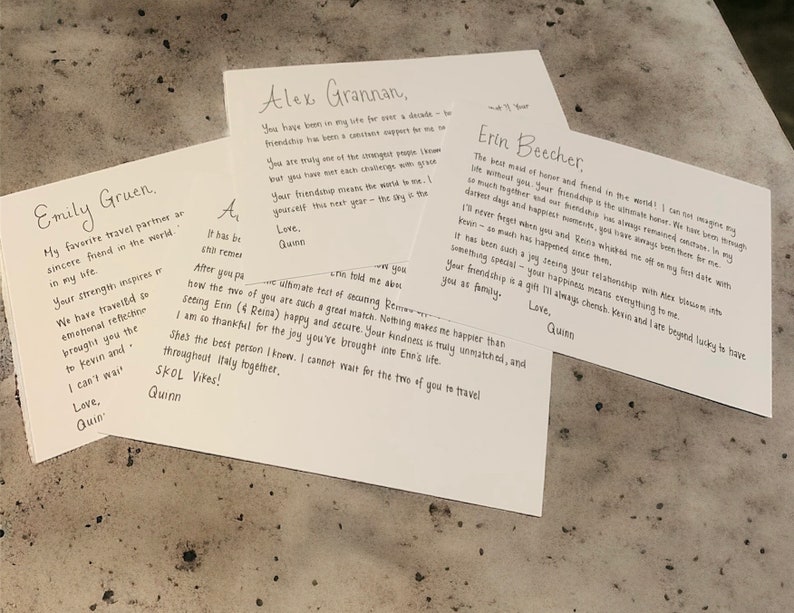 Emily Gruen,
My favorite travel partner
sincere friend in the world.
in my life.
Your strength inspires
We have traveled so
emotional reflection
brought you the
to Kevin and
I can't wait
Love,
Quin
It has be
still reme
After you pa
the ultimate test of securing
how the two of you are such a great match. Nothing makes me happier than
seeing Erin (& Reina) happy and secure. Your kindness is truly unmatched, and
I am so thankful for the joy you've brought into Erin's life.
She's the best person I know. I cannot wait for the two of you to travel
throughout Italy together.
SKOL Vikes!
Quinn
Alex Grannan,
You have been in my life for over a decade –
friendship has been a constant support for me
You are truly one of the strongest people I know
but you have met each challenge with grace
Your friendship means the world to me. I
yourself this next year – the sky is the
Love,
Quinn
Erin Beecher,
The best maid of honor and friend in the world! I can not imagine my
life without you. Your friendship is the ultimate honor. We have been through
so much together and our friendship has always remained constant. In my
darkest days and happiest moments, you have always been there for me.
I'll never forget when you and Reina whisked me off on my first date with
Kevin – so much has happened since then.
It has been such a joy seeing your relationship with Alex blossom into
something special – your happiness means everything to me.
Your friendship is a gift I'll always cherish. Kevin and I are beyond lucky to have
you as family.
Love,
Quinn